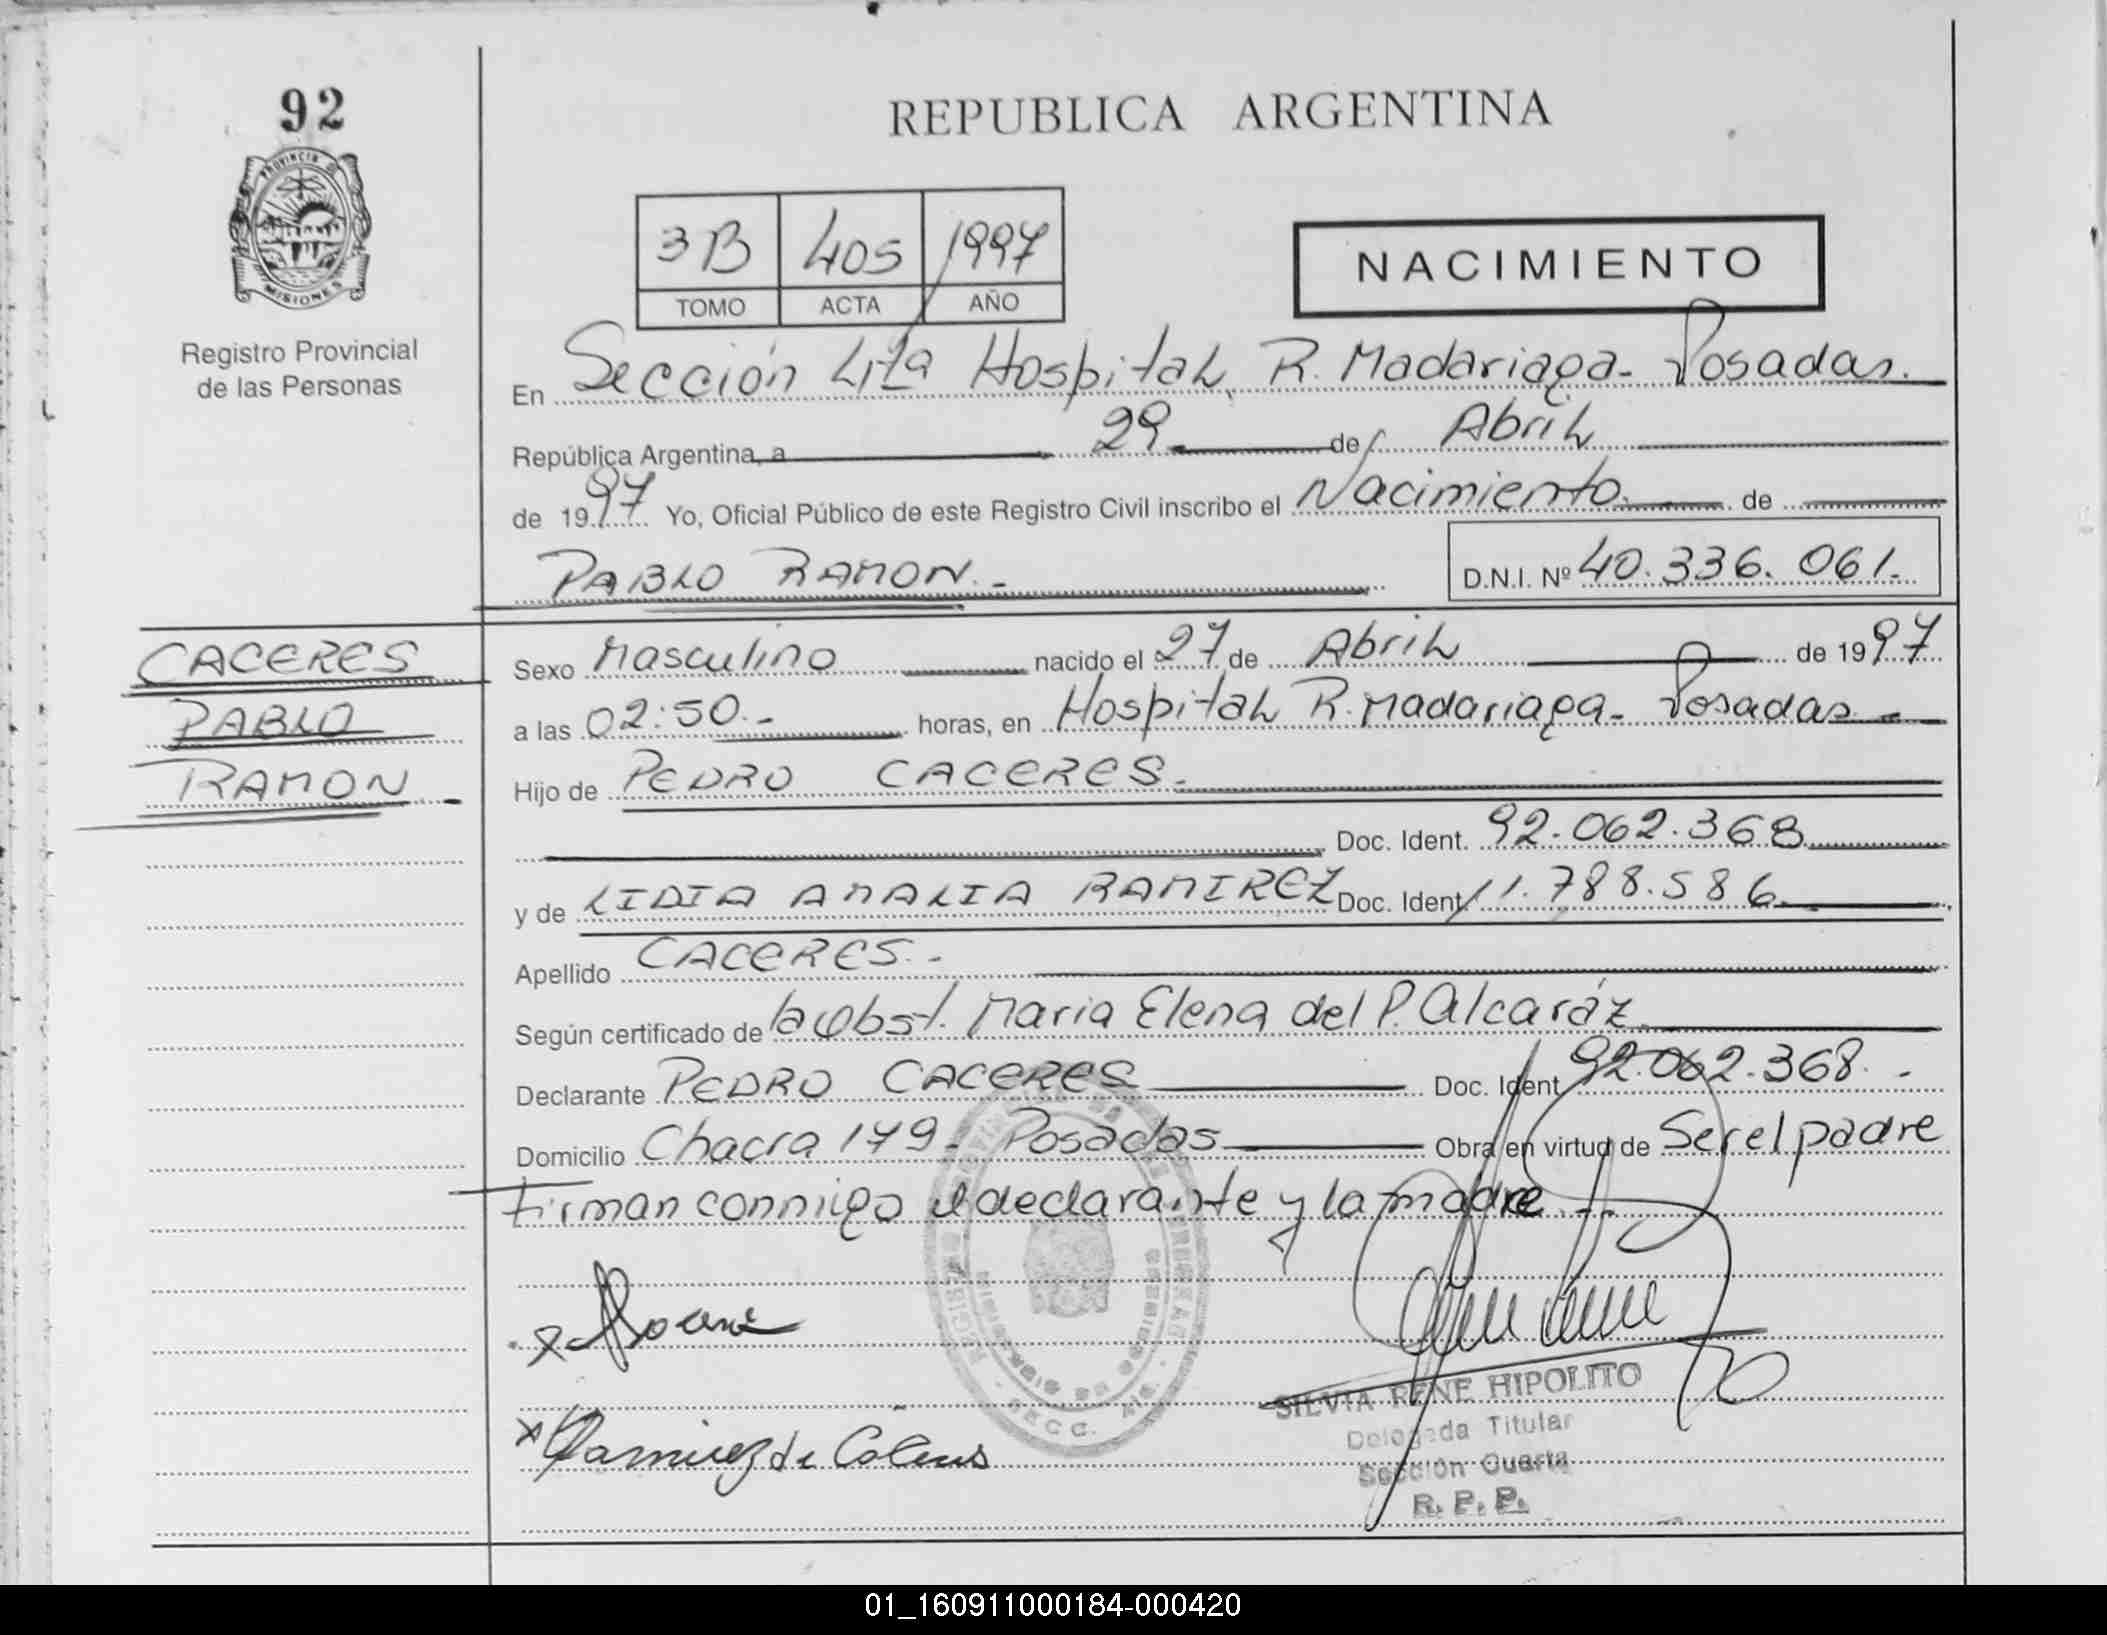 92
REPUBLICA ARGENTINA
PROVINCIA DE
MISIONES
Registro Provincial
de las Personas
3B 405 1997
TOMO ACTA AÑO
NACIMIENTO
En Sección 4ta Hospital R. Madariaga - Posadas.
República Argentina, a 29 de Abril
de 1997 Yo, Oficial Público de este Registro Civil inscribo el Nacimiento. de
PABLO RAMON.-
D.N.I. Nº 40.336.061.
CACERES
PABLO
RAMON.-
Sexo Masculino nacido el 27 de Abril de 1997
a las 02:50.- horas, en Hospital R. Madariaga - Posadas -
Hijo de PEDRO CACERES.-
Doc. Ident. 92.062.368
y de LIDIA AMALIA RAMIREZ Doc. Ident. 11.788.586.
Apellido CACERES.-
Según certificado de la Obst. Maria Elena del P. Alcaráz
Declarante PEDRO CACERES Doc. Ident 92.062.368.-
Domicilio Chacra 179 - Posadas Obra en virtud de Ser el padre
Firman conmigo el declarante y la madre.--
Ramirez de
SILVIA RENE HIPOLITO
Delegada Titular
Sección Cuarta
R. P. P.
01_160911000184-000420